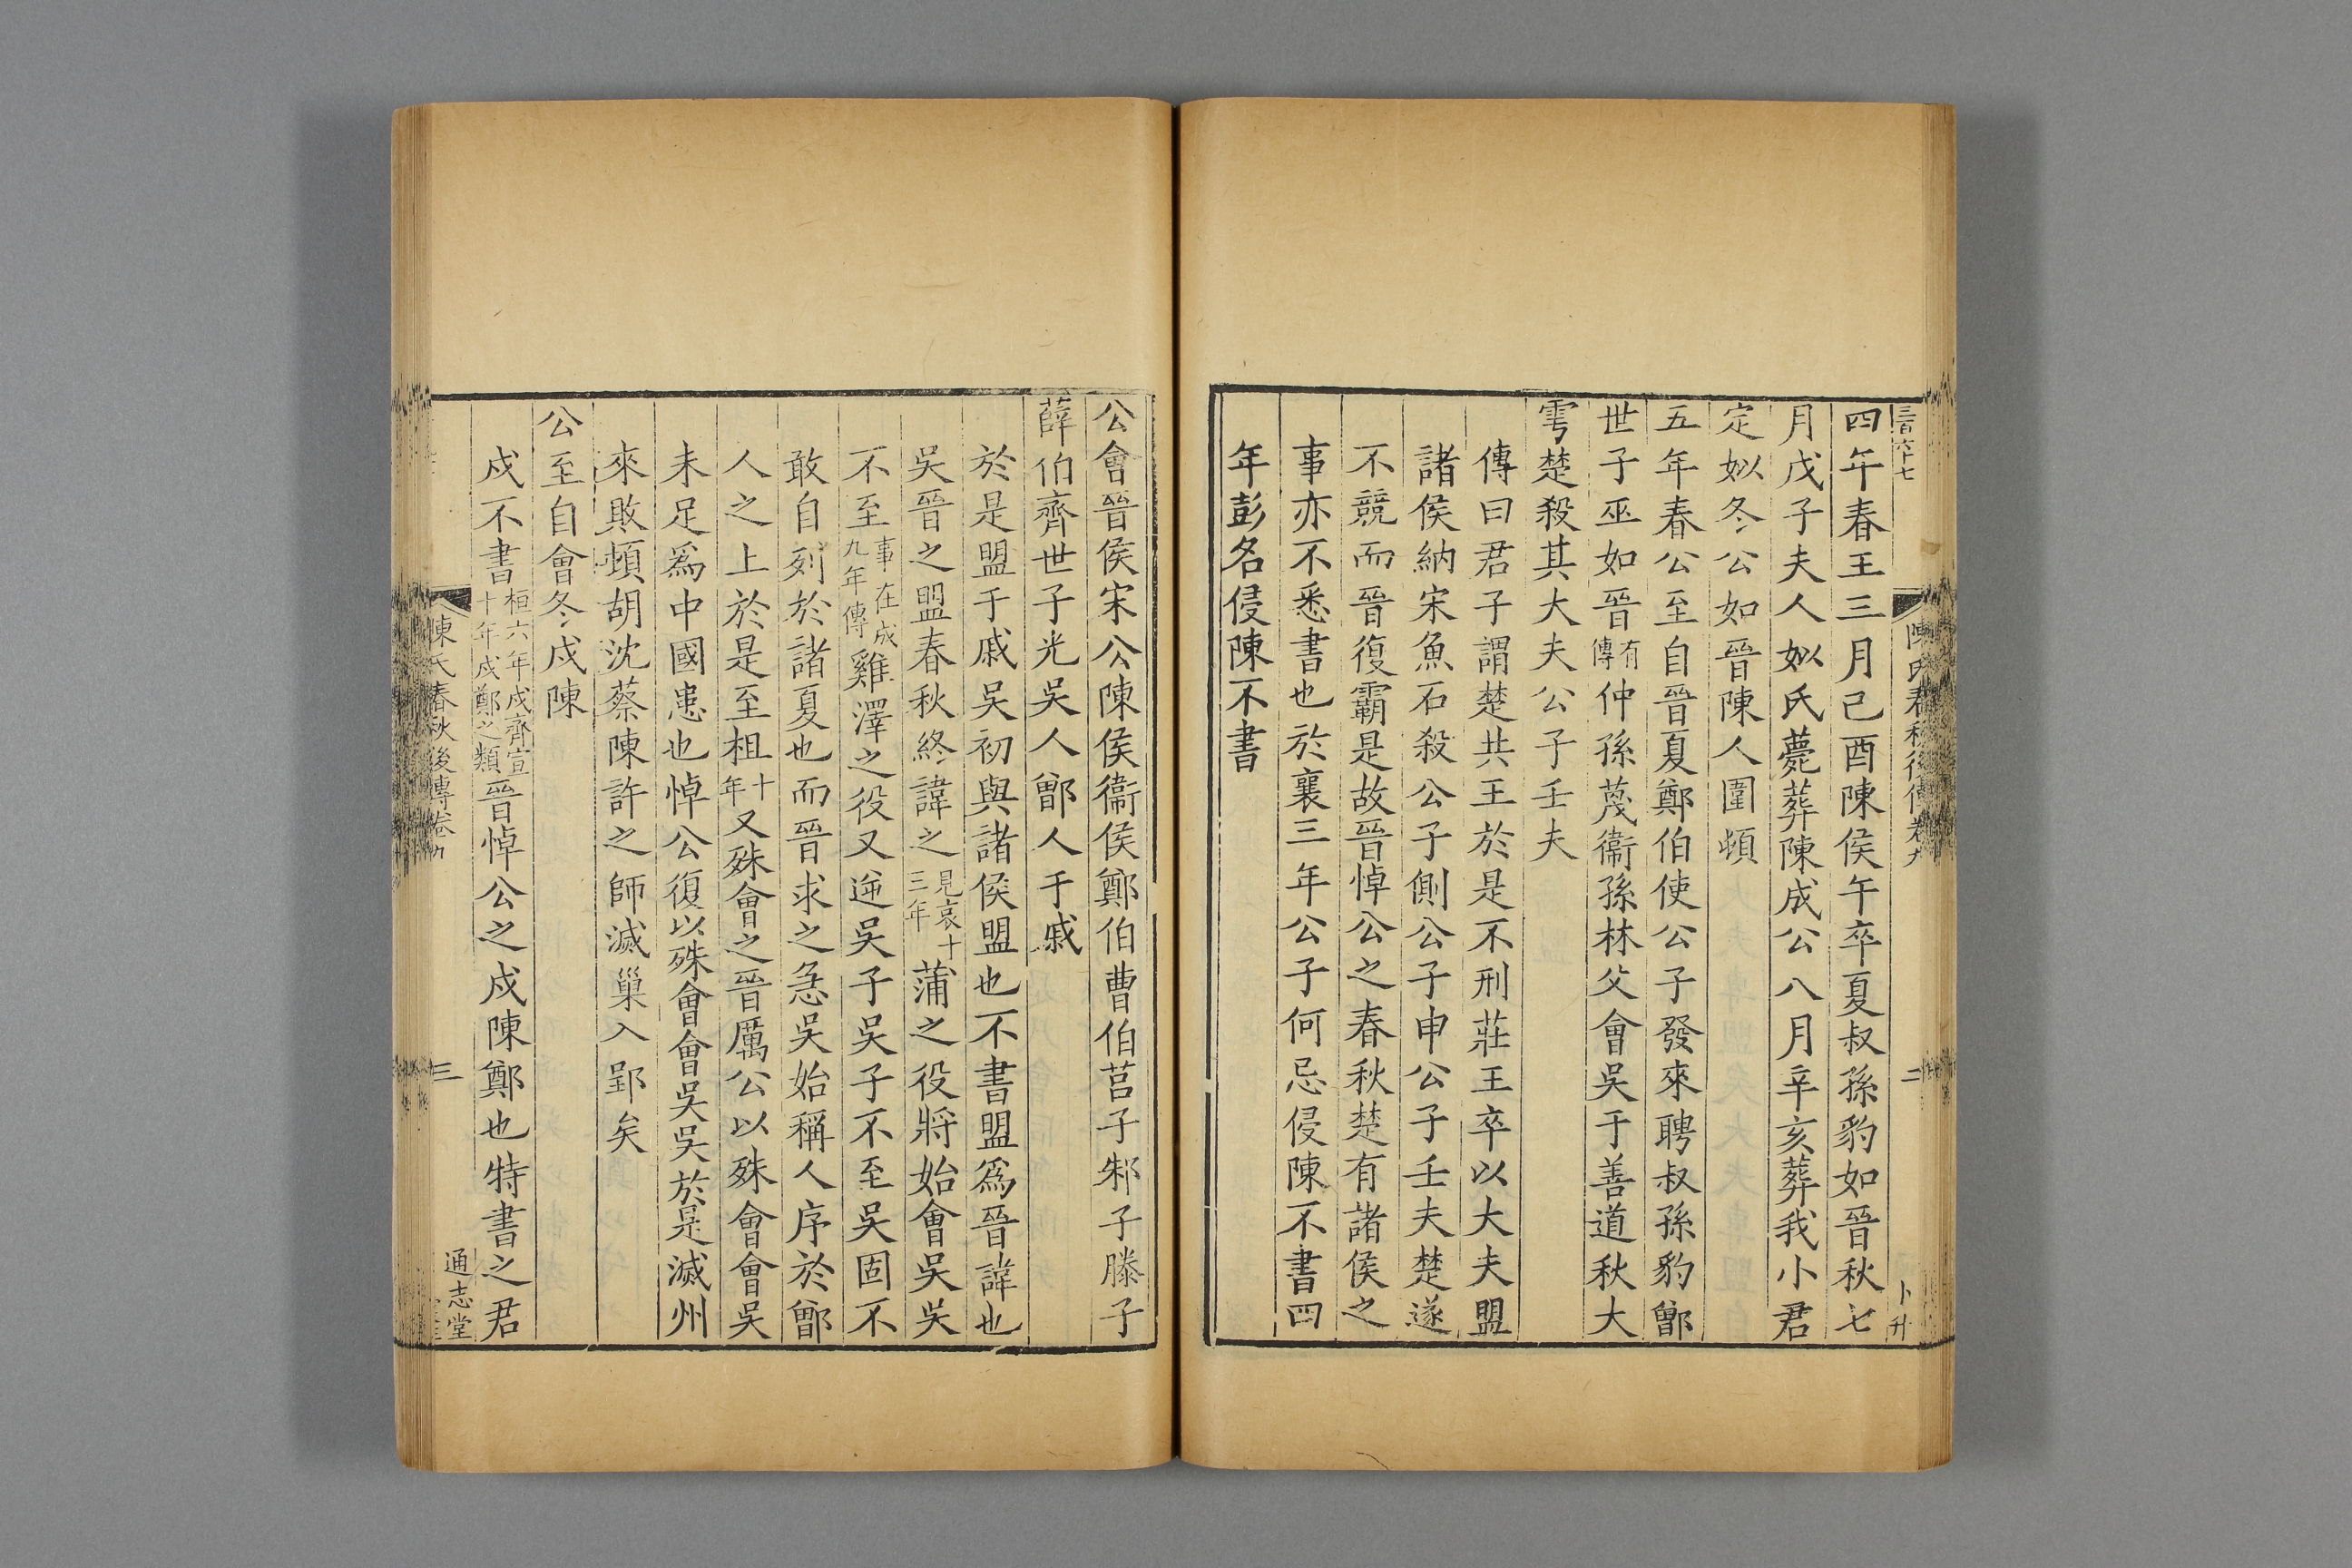 四年春王三月己酉陳侯午卒夏叔孫豹如晉秋七
月戊子夫人姒氏薨葬陳成公八月辛亥葬我小君
定姒冬公如晉陳人圍頓
五年春公至自晉夏鄭伯使公子發來聘叔孫豹鄫
世子巫如晉有傳仲孫蔑衞孫林父會吳于善道秋大
雩楚殺其大夫公子壬夫
傳曰君子謂楚共王於是不刑莊王卒以大夫盟
諸侯納宋魚石殺公子側公子申公子壬夫楚遂
不競而晉復霸是故晉悼公之春秋楚有諸侯之
事亦不悉書也於襄三年公子何忌侵陳不書四
年彭名侵陳不書
陳氏春秋後傳卷九
二
卜升
公會晉侯宋公陳侯衞侯鄭伯曹伯莒子邾子滕子
薛伯齊世子光吳人鄫人于戚
於是盟于戚吳初與諸侯盟也不書盟爲晉諱也
吳晉之盟春秋終諱之見哀十三年蒲之役將始會吳吳
不至事在成九年傳雞澤之役又逆吳子吳子不至吳固不
敢自列於諸夏也而晉求之急吳始稱人序於鄫
人之上於是至柤十年又殊會之晉厲公以殊會會吳
未足爲中國患也悼公復以殊會會吳吳於是滅州
來敗頓胡沈蔡陳許之師滅巢入郢矣
公至自會冬戍陳
戍不書桓六年戍齊宣十年戍鄭之類晉悼公之戍陳鄭也特書之君
陳氏春秋後傳卷九
三
通志堂